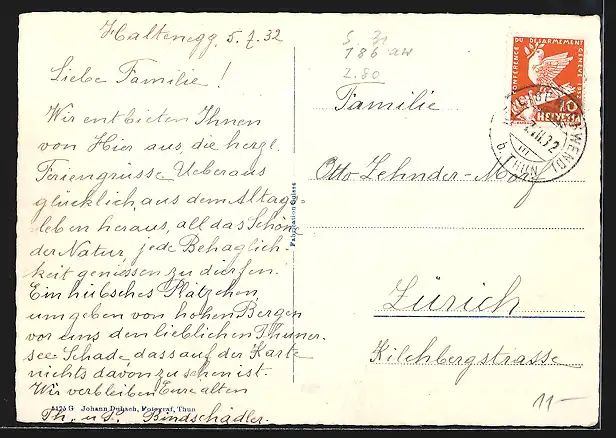 Haltenegg, 5.7.32
Liebe Familie!
Wir entbieten Ihnen
von Hier aus, die herzl.
Feriengrüsse Ueberaus
glücklich, aus dem Alltags-
leben heraus, all das Schöne
der Natur, jede Behaglich-
keit geniessen zu dürfen.
Ein hübsches Plätzchen,
umgeben von hohen Bergen
vor uns den lieblichen Thuner-
see Schade, dass auf der Karte
nichts davon zu sehen ist.
Wir verbleiben Eure alten
Th. u. L. Bindschädler.
4125 G Johann Dubach, Fotograf, Thun
Fabrication Suisse
S. 31
186 aw
2.80
CONFERENCE DU DESARMEMENT GENEVE 1932
10
HELVETIA
b. THUN
Familie
Otto Zehnder-Morf
Zürich
Kilchbergstrasse
11-